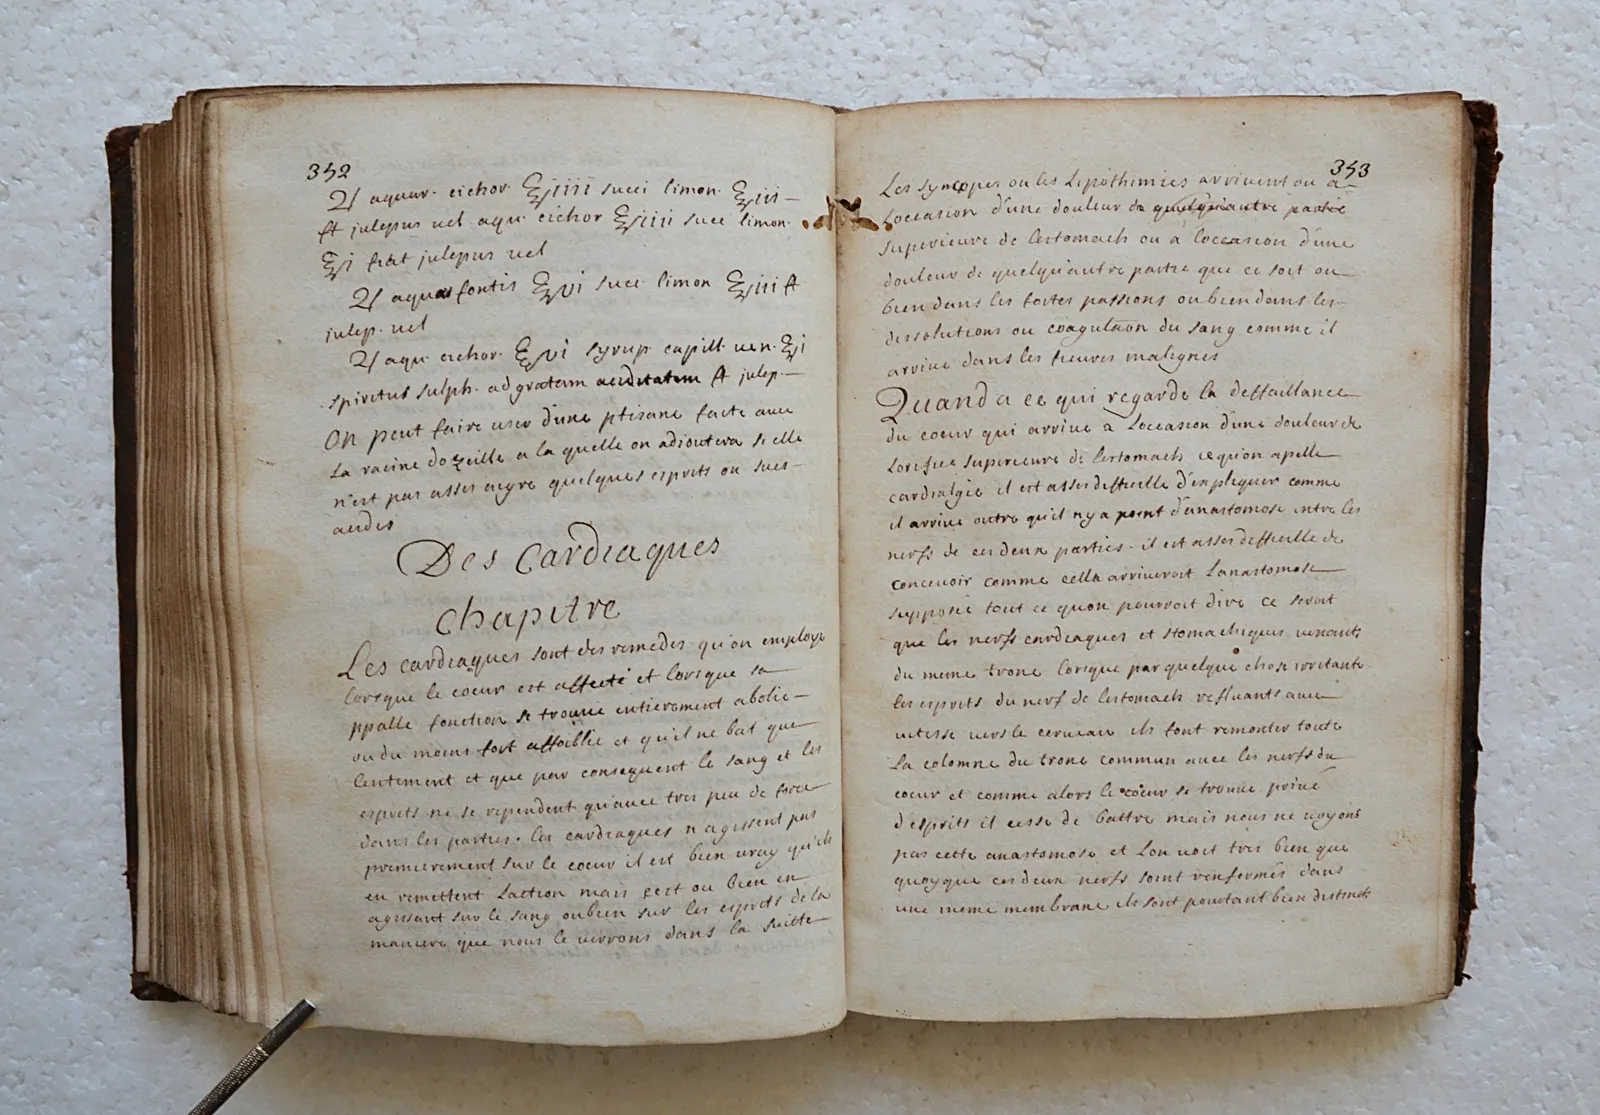 352
♃ aquar. cichor. ℥iiii succi limon. ℥iii
ft julepus vel aqu. cichor ℥iiii succ limon.
℥i fiat julepus vel
♃ aquas fontis ℥vi succ. limon ℥iii ft
julep. vel
♃ aqu. cichor. ℥vi syrup. capill. ven. ℥i
spiritus sulph. ad gratam aciditatem ft julep.
On peut faire user d'une ptisane faicte avec
la racine dozeille a la quelle on adioutera si elle
n'est pas asses aigre quelques esprits ou sucs
acides
Des Cardiaques
chapitre
Les cardiaques sont des remedes qu'on employe
lorsque le coeur est affecté et lorsque sa
ppalle fonction se trouve entierement abolie
ou du moins fort affoiblie et qu'il ne bat que
lentement et que par consequent le sang et les
esprits ne se rependent qu'avec tres peu de force
dans les parties. les cardiaques n'agissent pas
premierement sur le coeur il est bien vray qu'ils
en remettent l'action mais c'est ou bien en
agissant sur le sang ou bien sur les esprits de la
maniere que nous le verrons dans la suitte
353
Les syncopes ou les Lipothimies arrivent ou a
l'occasion d'une douleur de quelqu'autre partie
superieure de l'estomach ou à l'occasion d'une
douleur de quelqu'autre partie que ce soit ou
bien dans les fortes passions ou bien dans les
dissolutions ou coagulation du sang comme il
arrive dans les fievres malignes
Quand a ce qui regarde la deffaillance
du coeur qui arrive à l'occasion d'une douleur de
l'orifice superieure de l'estomach ce qu'on apelle
cardialgie il est asses difficille d'expliquer comme
il arrive outre qu'il n'y a point d'anastomose entre les
nerfs de ces deux parties. il est asses difficille de
concevoir comme cella arriveroit l'anastomose
supposé tout ce quon pourroit dire ce seroit
que les nerfs cardiaques et stomachiques venants
du meme tronc lorsque par quelque chose irritante
les esprits du nerf de l'estomach refluants avec
vitesse vers le cerveau ils font remonter toute
la colomne du tronc commun avec les nerfs du
coeur et comme alors le coeur se trouve privé
d'esprits il cesse de battre mais nous ne voyons
pas cette anastomose et l'on voit tres bien que
quoyque ces deux nerfs soint renfermés dans
une meme membrane ils sont pourtant bien distincts